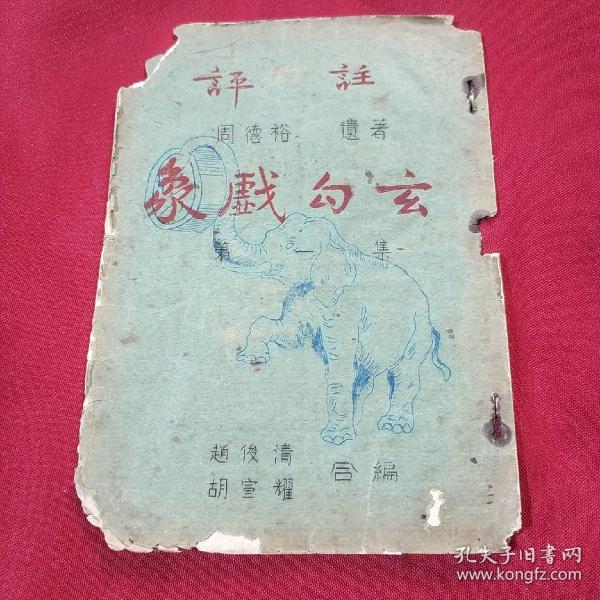 評註
周德裕 遺著
象戲勾玄
第一集
趙俊清
胡宣耀
合編
孔夫子旧书网
www.kongfz.com